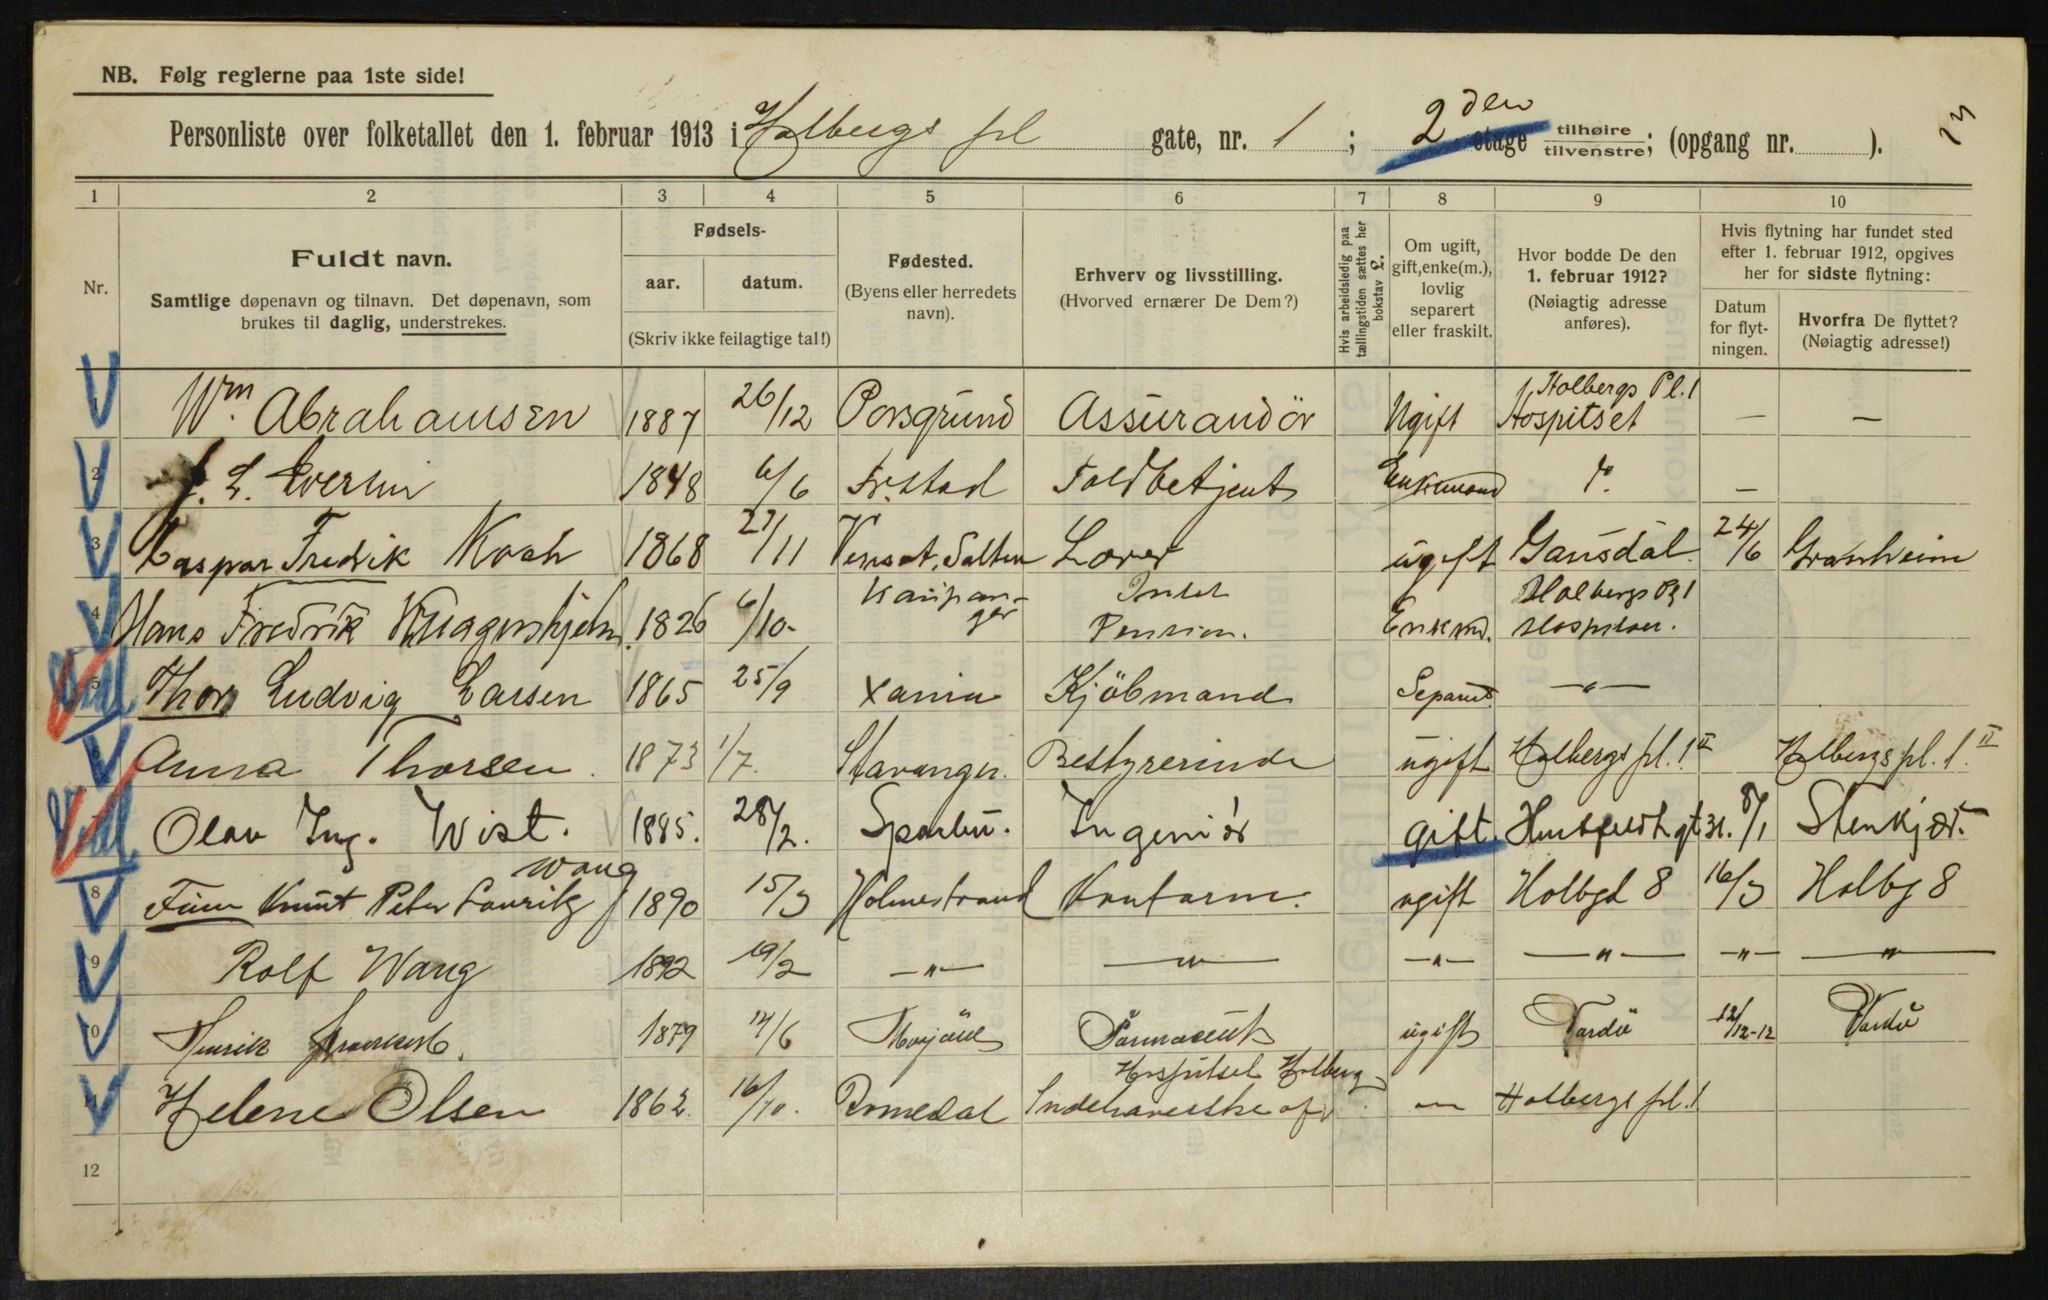 NB. Følg reglerne paa 1ste side!
Personliste over folketallet den 1. februar 1913 i Holbergs pl gate, nr. 1 ; 2den etage tilhøire tilvenstre; (opgang nr. ).
13
1 2 3 4 5 6 7 8 9 10
Nr.
Fuldt navn.
Samtlige døpenavn og tilnavn. Det døpenavn, som
brukes til daglig, understrekes.
Fødsels-
aar. datum.
(Skriv ikke feilagtige tal!)
Fødested.
(Byens eller herredets
navn).
Erhverv og livsstilling.
(Hvorved ernærer De Dem?)
Hvis arbeidsledig paa
tællingstiden sættes her
bokstav L.
Om ugift,
gift, enke(m.),
lovlig
separert
eller fraskilt.
Hvor bodde De den
1. februar 1912?
(Nøiagtig adresse
anføres).
Hvis flytning har fundet sted
efter 1. februar 1912, opgives
her for sidste flytning:
Datum
for flyt-
ningen.
Hvorfra De flyttet?
(Nøiagtig adresse!)
1 Wm. Abrahamsen 1887 26/12 Porsgrund Assurandör Ugift Holbergs Pl. 1 Hospitset — —
2 L. Eversen 1848 6/6 Fr.stad Toldbetjent Enkemand Do. —
3 Caspar Fredrik Koch 1868 27/11 Salten Lærer ugift Gausdal 24/6 Granheim
4 Hans Fredrik 1826 6/10- Kaupan-
ger Intet
Pension. Enkmd. Holbergs Pl 1
5 Thor Ludvig Larsen 1865 25/9 Xania Kjöbmand Separert —"—
6 Anna Thorsen. 1873 1/7. Stavanger. Bestyrerinde ugift Holbergs pl. 1 II Holbergs pl. 1 II
7 Olav Ing. Wist. 1885. 28/2. Sparbu. Ingeniör gift. gt 31. 8/1 Stenkjær.
8 Finn Knut Peter Lauritz Wang 1890 15/3 Holmestrand Kontorm. ugift Holbgt 8 16/3 Holbg 8
9 Rolf Wang 1892 19/2 —"— —"— —"— —"— —"— —"—
10 Henrik 1879 14/6 ugift Vardö 12/12-12 Vardö
11 Helene Olsen 1862. 16/10. Romedal Indehaverske af Hospitset Holberg — Holbergs pl. 1.
12